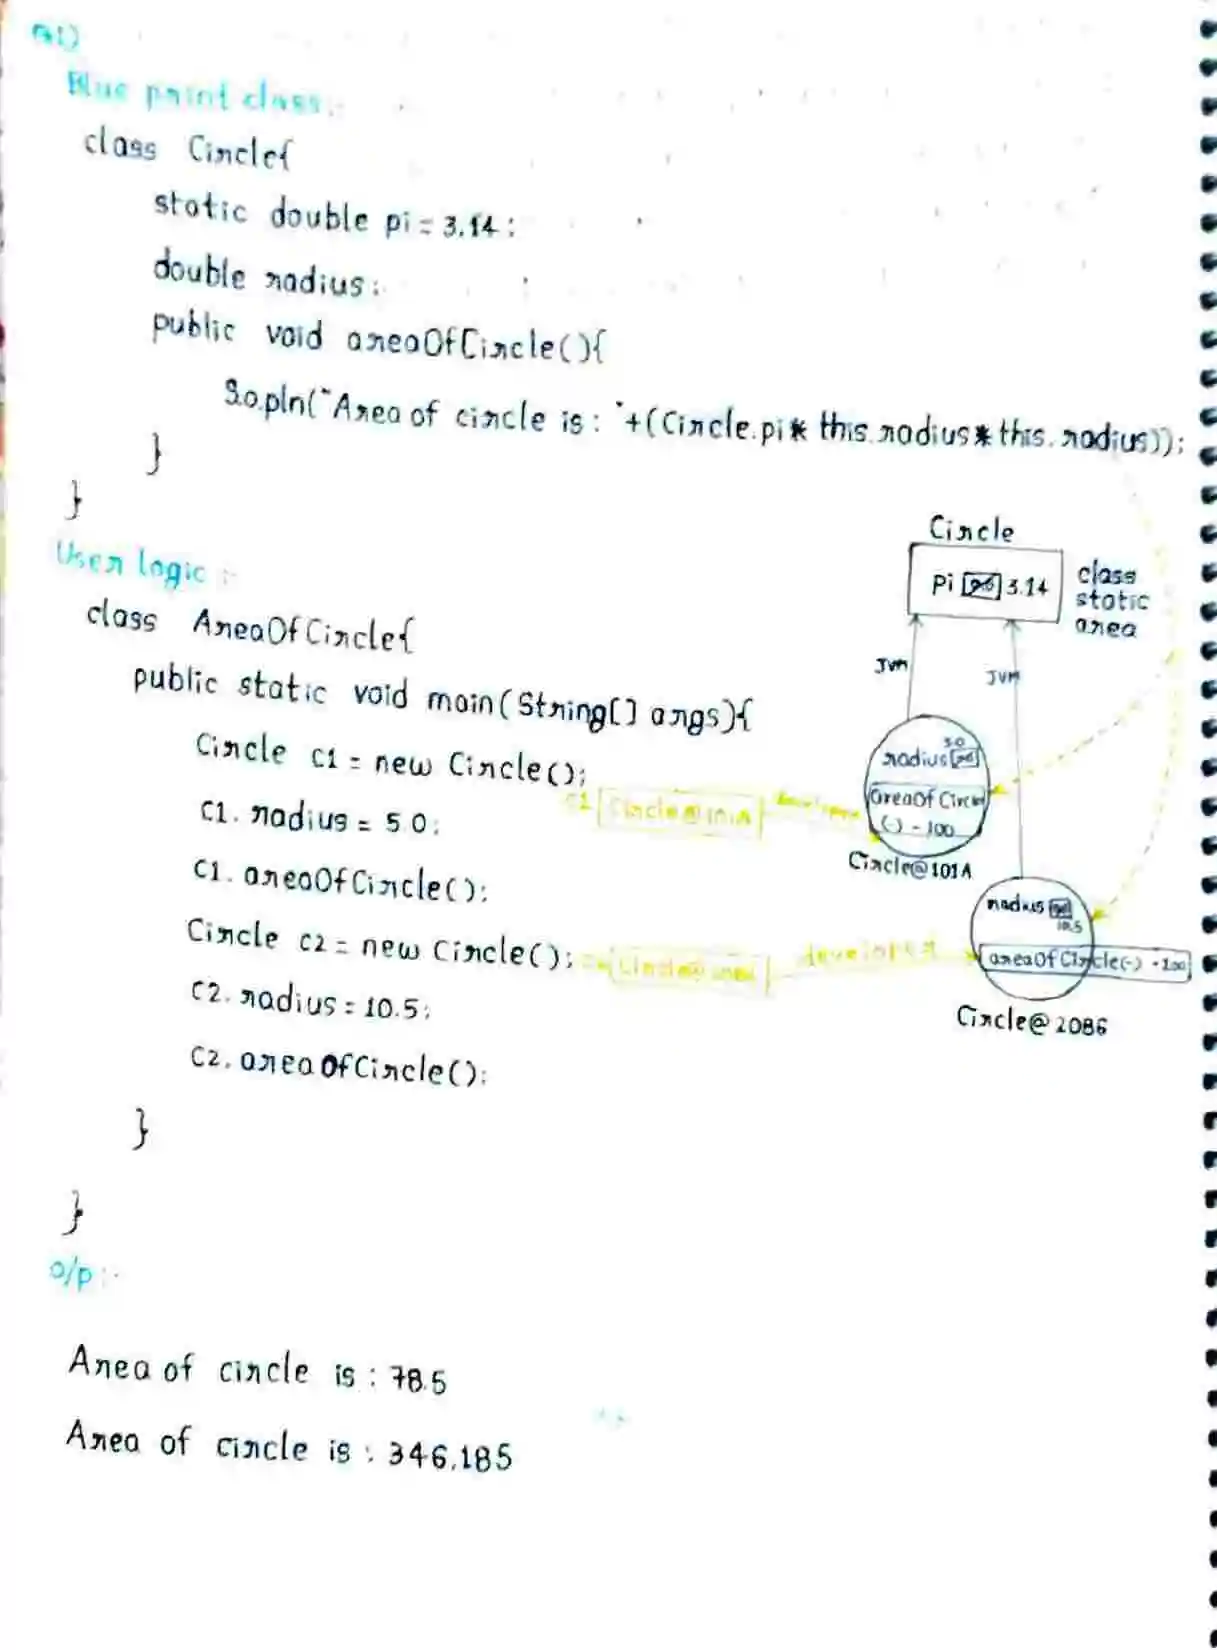 Q1)
Blue print class:-
class Circle{
static double pi = 3.14;
double radius;
public void areaOfCircle(){
S.o.pln("Area of circle is: "+(Circle.pi* this.radius*this.radius));
}
}
User logic :-
class AreaOfCircle{
public static void main(String[] args){
Circle c1 = new Circle();
C1. radius = 5.0;
C1. areaOfCircle();
Circle c2 = new Circle();
C2. radius = 10.5;
C2. areaOfCircle();
}
}
Circle
Pi 3.14
class
static
area
JVM
JVM
5.0
radius
areaOf Circle
(-) - 100
Circle@101A
C1 Circle@101A developer
radius
10.5
areaOfCircle(-) -100
Circle@2086
developer
o/p:-
Area of circle is : 78.5
Area of circle is : 346.185